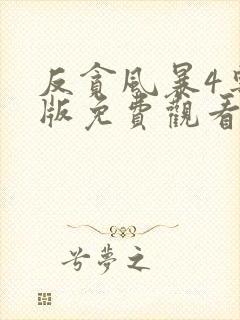 反貪風暴4粵
版免費觀看
兮夢之